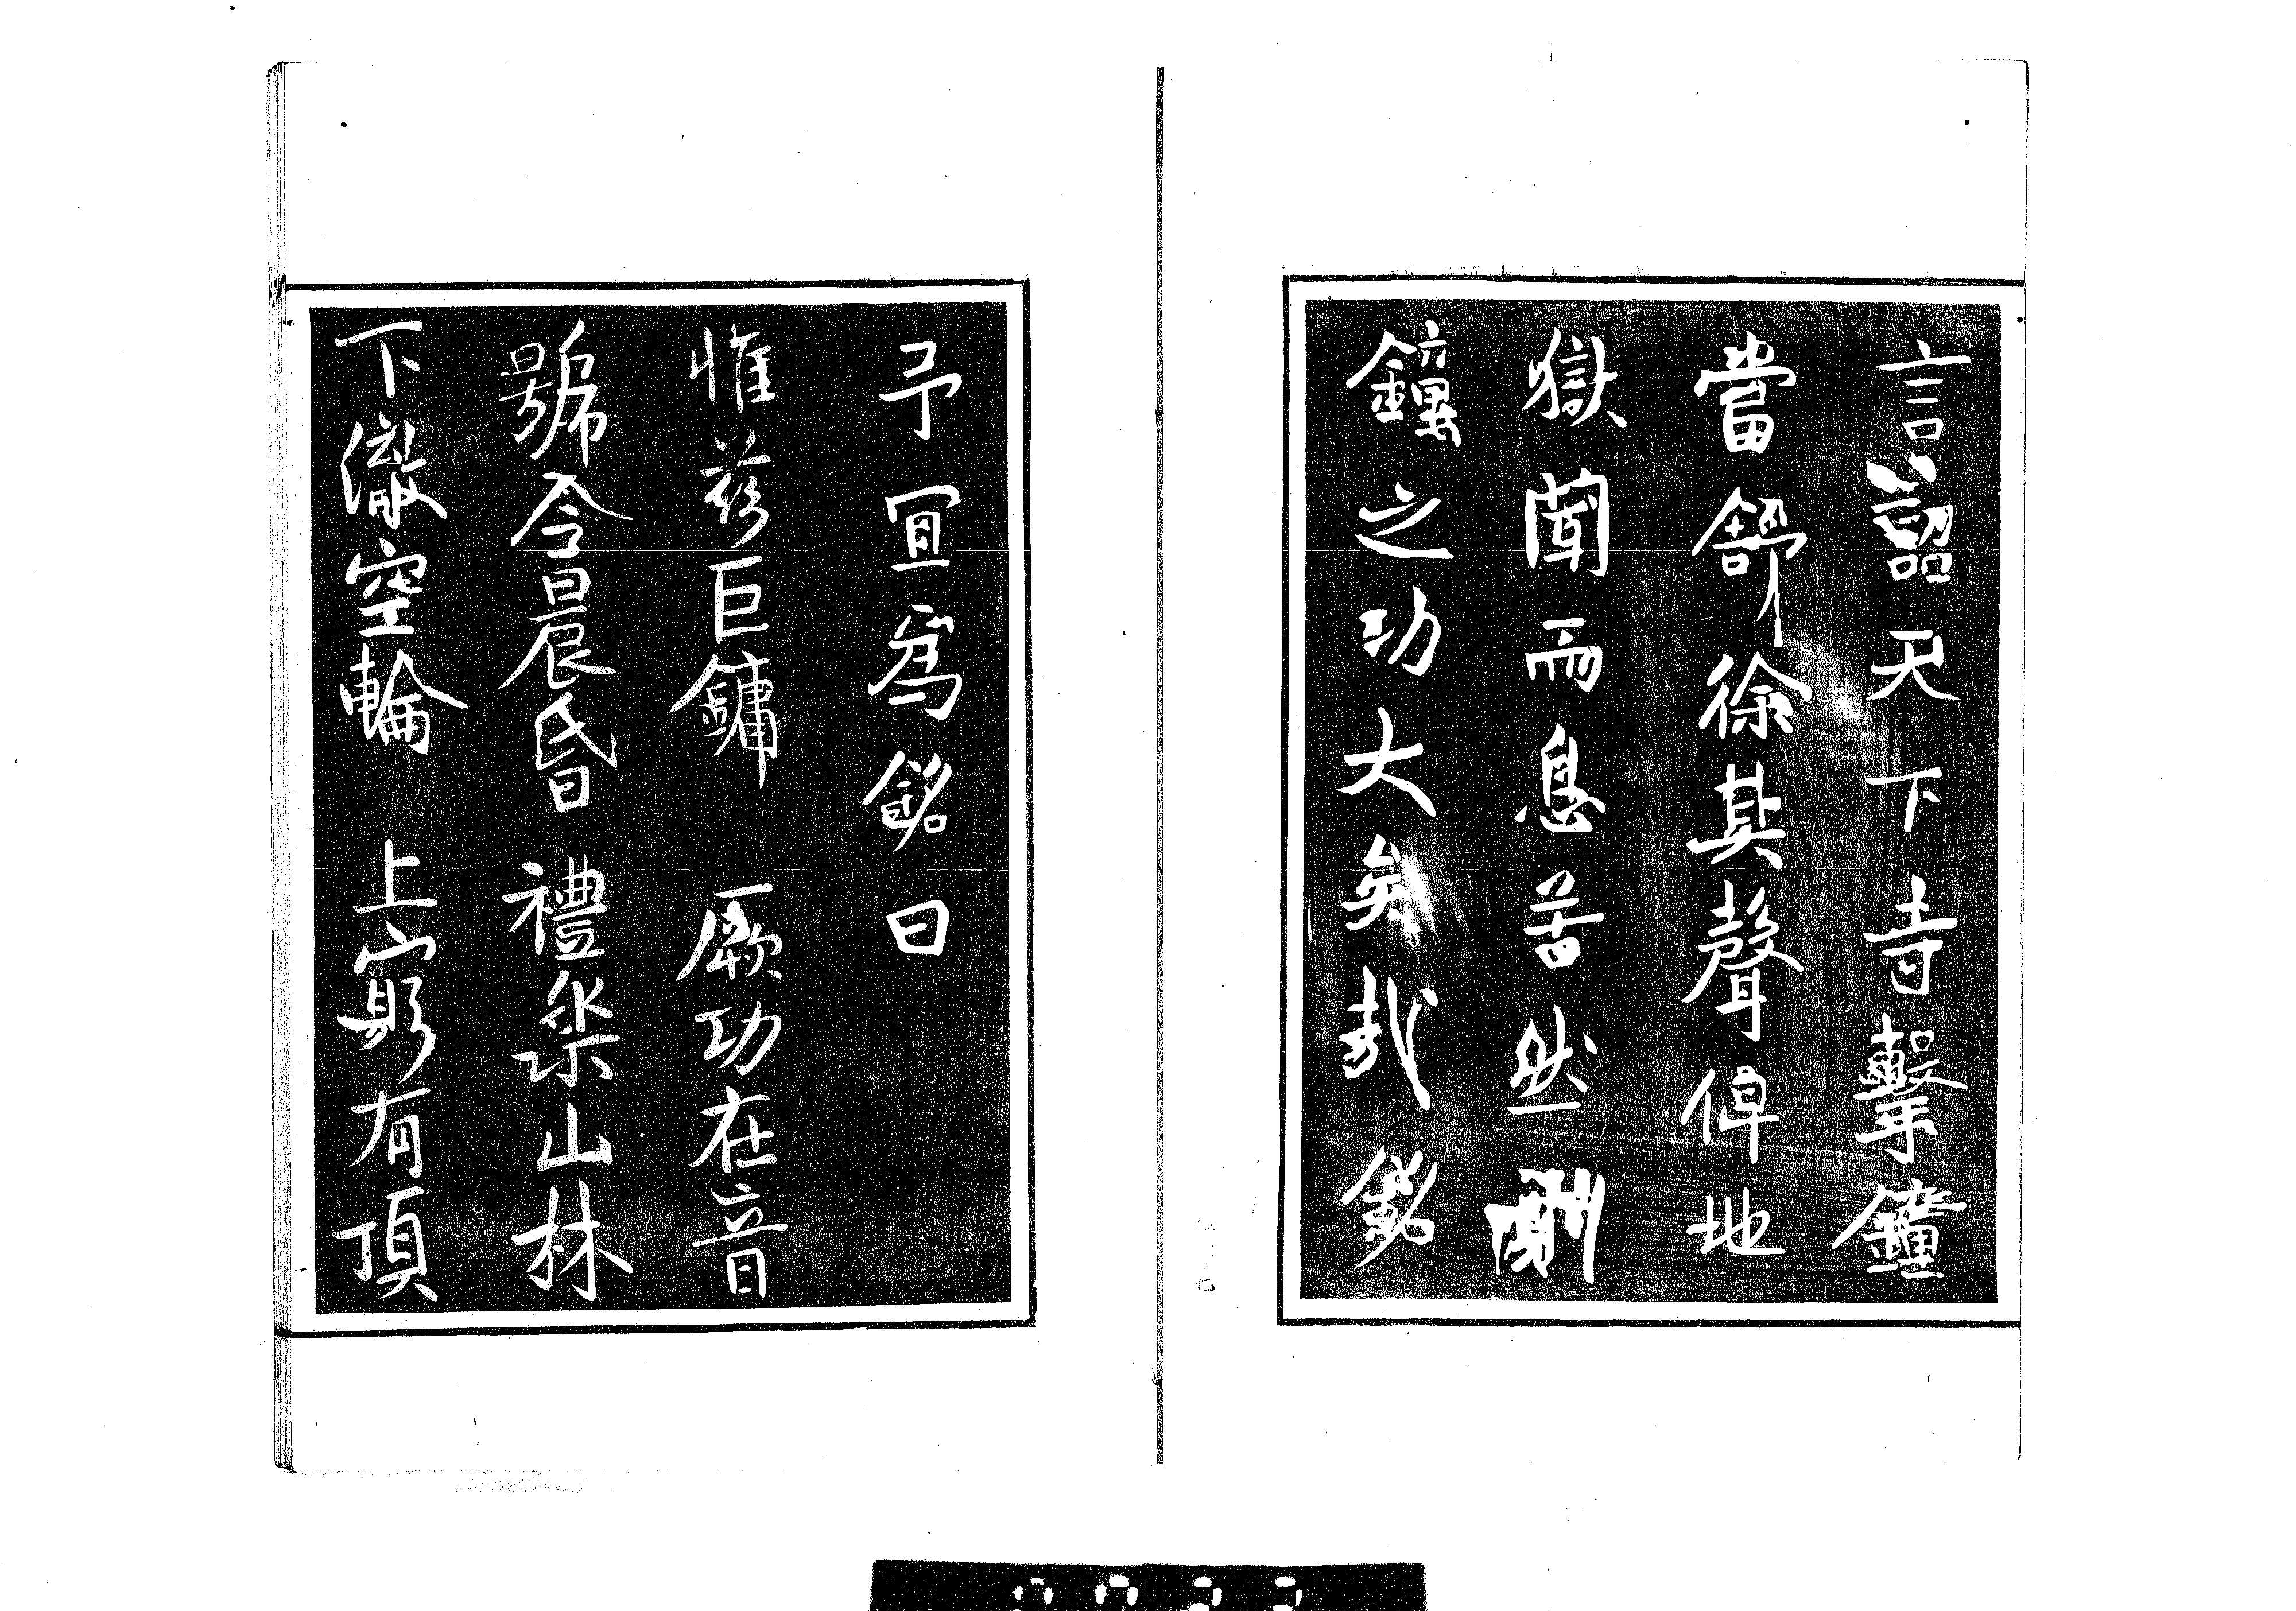 言詔天下寺擊鐘
當舒徐其聲俾地
獄聞而息苦然則
鐘之功大矣哉銘
予宜爲銘曰
惟茲巨鏞 厥功在音
號令晨昏 禮樂山林
下徹空輪 上窮有頂